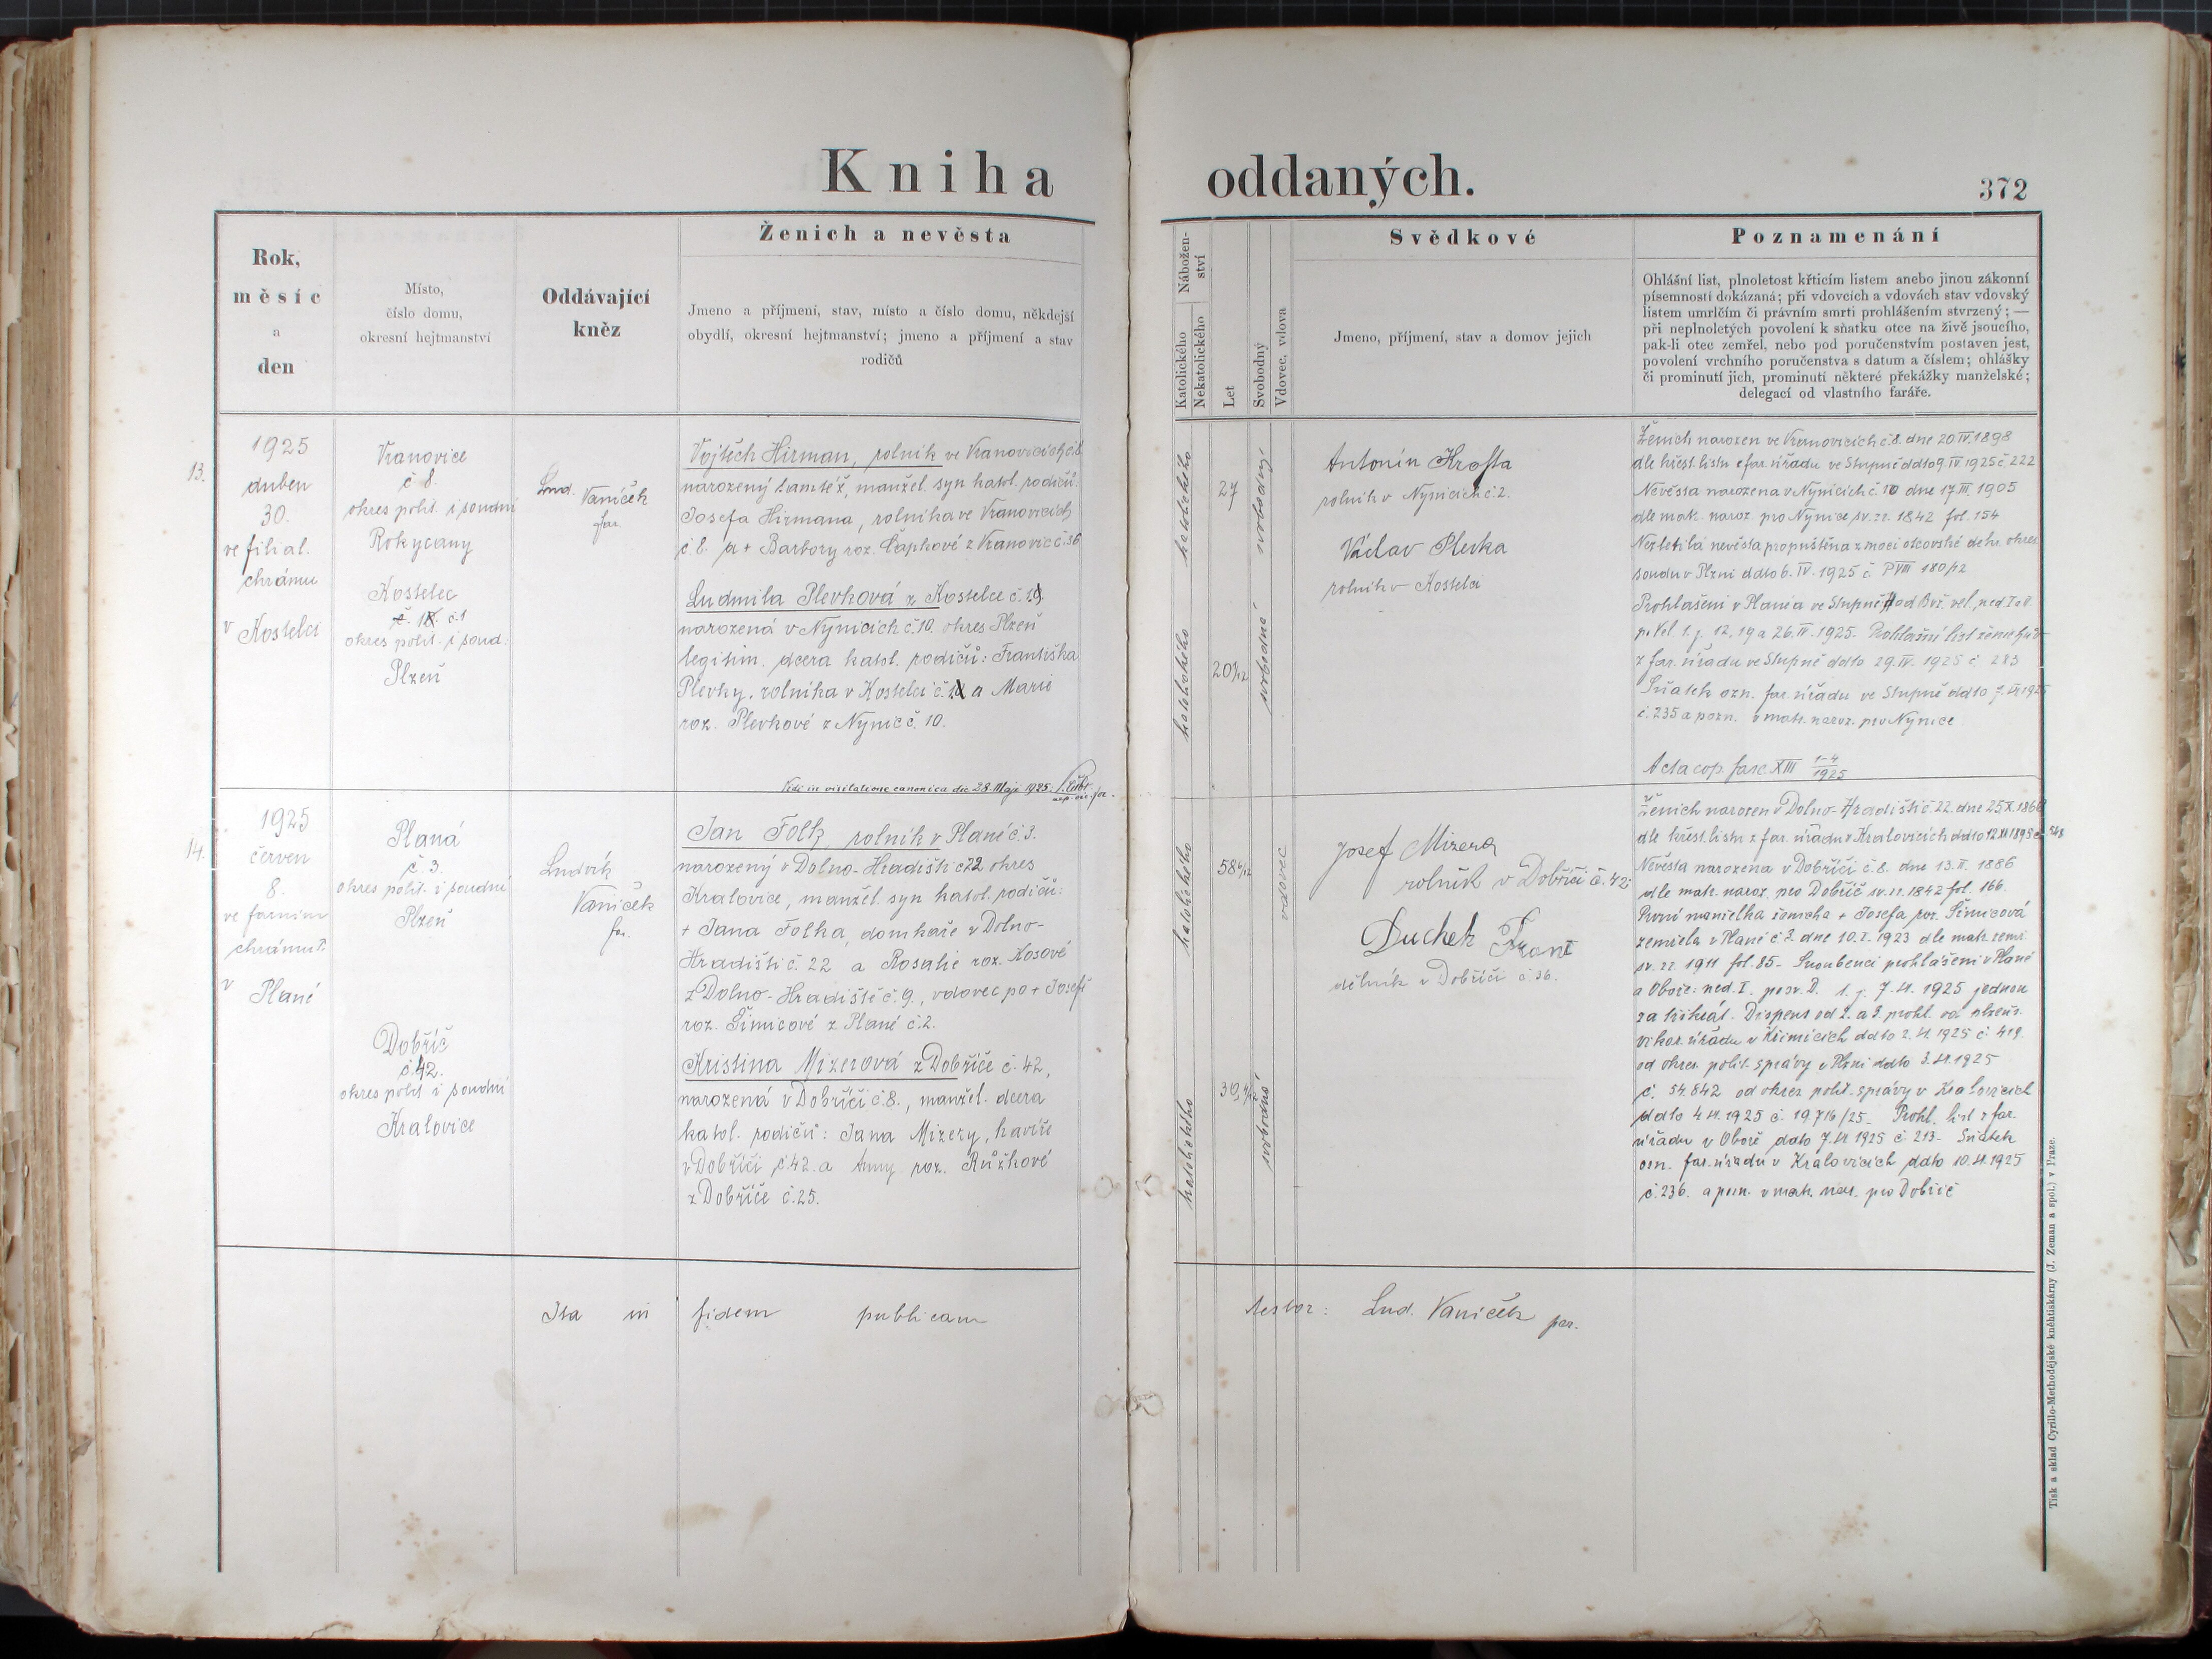 Kniha oddaných.
372
Rok,
měsíc
a
den
Místo,
číslo domu,
okresní hejtmanství
Oddávající
kněz
Ženich a nevěsta
Jmeno a příjmení, stav, místo a číslo domu, někdejší
obydlí, okresní hejtmanství; jmeno a příjmení a stav
rodičů
Nábožen-
ství
Katolického
Nekatolického
Let
Svobodný
Vdovec, vdova
Svědkové
Jmeno, příjmení, stav a domov jejich
Poznamenání
Ohlášní list, plnoletost křticím listem anebo jinou zákonní
písemností dokázaná; při vdovcích a vdovách stav vdovský
listem umrlčím či právním smrti prohlášením stvrzený; —
při neplnoletých povolení k sňatku otce na živě jsoucího,
pak-li otec zemřel, nebo pod poručenstvím postaven jest,
povolení vrchního poručenstva s datum a číslem; ohlášky
či prominutí jich, prominutí některé překážky manželské;
delegací od vlastního faráře.
13.
1925
duben
30.
ve filial.
chrámu
v Kostelci
Vranovice
č 8.
okres polit. i soudní
Rokycany
Kostelec
č. 18. č.1
okres polit. i soud:
Plzeň
Lud. Vaníček
far.
Vojtěch Hirman, rolník ve Vranovicích č.8
narozený tamtéž, manžel. syn katol. rodičů:
Josefa Hirmana, rolníka ve Vranovicích
č 8. a + Barbory roz. Čapkové z Vranovic č 36
Ludmila Plevková z Kostelce č.1
narozená v Nynicích č.10. okres Plzeň
legitim. dcera katol. rodičů: Františka
Plevky, rolníka v Kostelci č.1 a Marie
roz. Plevkové z Nynic č. 10.
Vidi in visitatione canonica die 28. Maji 1925.
katolického
katolického
27
20 1/12
svobodný
svobodná
Antonín Krofta
rolník v Nynicích č 2.
Václav Plevka
rolník v Kostelci
Ženich narozen ve Vranovicích č.8. dne 20.IV.1898
dle křest. listu z far. úřadu ve Stupně ddto 9.IV.1925 č. 222
Nevěsta narozena v Nynicích č. 10 dne 17.III.1905
dle mat. naroz. pro Nynice sv. 1842 fol. 154
Nezletilá nevěsta propuštěna z moci otcovské dekr. okres.
soudu v Plzni ddto 6.IV.1925 č. P VIII 180/12
Prohlášeni v Plané a ve Stupně od Bíl. vel., ned. I a II.
po Vel. t.j. 12, 19 a 26.IV.1925. Prohlašní list ženichův
z far. úřadu ve Stupně ddto 29.IV. 1925 č 283
Sňatek ozn. far. úřadu ve Stupně ddto 7.
č. 235 a pozn. v mat. naroz. pro Nynice
Acta cop. fasc. XIII 1-4/1925
14.
1925
červen
8.
ve farním
chrámu P.
v Plané
Planá
č. 3.
okres polit. i soudní
Plzeň
Dobříč
č.42.
okres polit. i soudní
Kralovice
Ludvík
Vaníček
far.
Jan Folk, rolník v Plané č.3.
narozený v Dolno-Hradišti č 22 okres
Kralovice, manžel. syn katol. rodičů:
+ Jana Folka, domkáře v Dolno-
Hradišti č. 22 a Rosalie roz. Kosové
z Dolno-Hradiště č.9., vdovec po + Josefě
roz. Šimicové z Plané č.2.
Kristina Mizerová z Dobříče č. 42,
narozená v Dobříči č.8., manžel. dcera
katol. rodičů: Jana Mizery, havíře
v Dobříči č.42. a Anny roz. Růžkové
z Dobříče č.25.
katolického
katolického
58
39
vdovec
svobodná
Josef Mizera
rolník v Dobříči č. 42.
Duchek Frant
dělník v Dobříči č. 36.
Ženich narozen v Dolno-Hradišti č 22. dne 25.X.1866
dle křest. listu z far. úřadu v Kralovicích ddto 12.XI.1895
Nevěsta narozena v Dobříči č.8. dne 13.II. 1886
dle mat. naroz. pro Dobříč sv. 1842 fol. 166.
První manželka ženicha + Josefa roz. Šimicová
zemřela v Plané č. 3. dne 10.I.1923 dle mat. zemř.
sv. 1911 fol. 85. Snoubenci prohlášeni v Plané
a Oboře: ned. I. po sv. D. t.j. 7.VI.1925 jednou
za trikrát. Dispens od 2. a 3. prohl. od
vikar. úřadu v Křimicích ddto 2.VI.1925 č. 419.
od okres. polit. správy v Plzni ddto 3.VI.1925
č. 54.842 od okres. polit. správy v Kralovicích
ddto 4.VI.1925 č. 19716/25. Prohl. list z far.
úřadu v Oboře ddto 7.VI 1925 č. 213. Sňatek
ozn. far. úřadu v Kralovicích ddto 10.VI.1925
č. 236. a pozn. v mat. nar. pro Dobříč
Ita in fidem publicam testor: Lud. Vaníček par.
Tisk a sklad Cyrillo-Methodějské knihtiskárny (J. Zeman a spol.) v Praze.